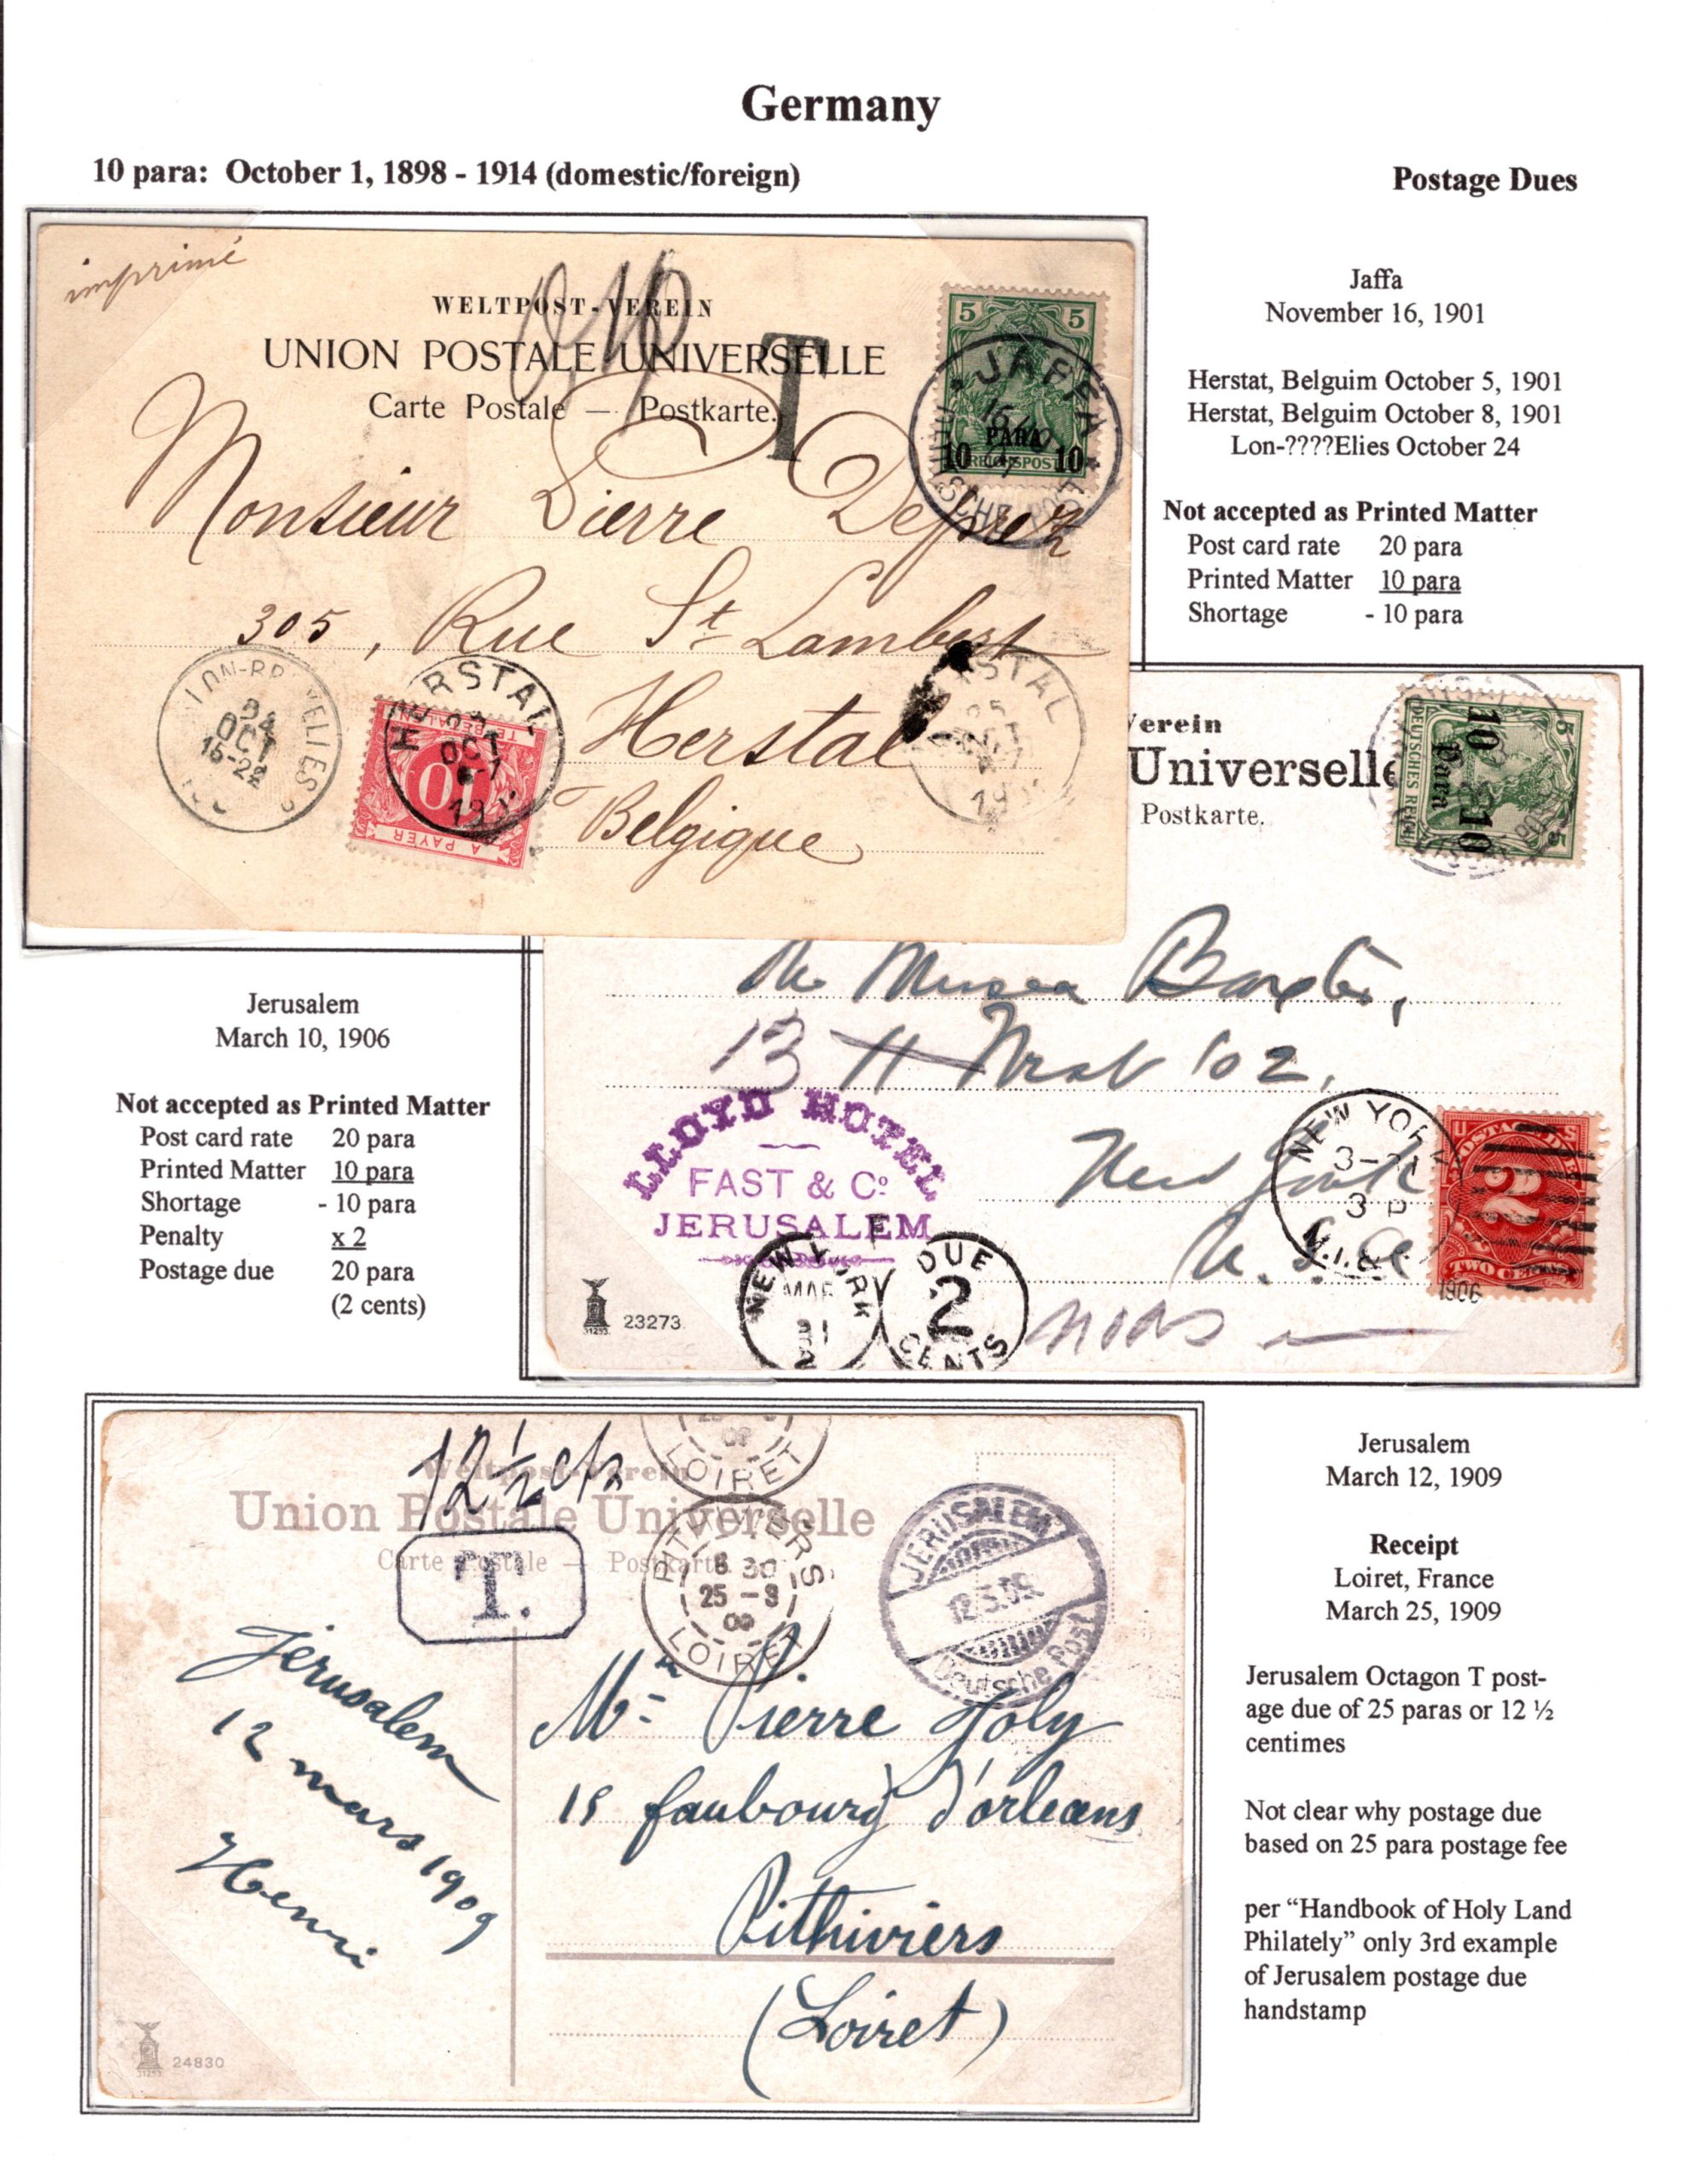 Germany
10 para: October 1, 1898 - 1914 (domestic/foreign)
Postage Dues
imprimé
WELTPOST-VEREIN
UNION POSTALE UNIVERSELLE
Carte Postale — Postkarte.
0,10
T
5 5
PARA
10 10
REICHSPOST
JAFFA
Monsieur Pierre
305, Rue St Lambert
Herstal
Belgique
24
OCT
15-22
HERSTAL
OCT
10
A PAYER
HERSTAL
Jaffa
November 16, 1901
Herstat, Belguim October 5, 1901
Herstat, Belguim October 8, 1901
Lon-????Elies October 24
Not accepted as Printed Matter
Post card rate 20 para
Printed Matter 10 para
Shortage - 10 para
Verein
Universelle
Postkarte.
5 5
10 10
Para
DEUTSCHES REICH
New York
U.S.A.
LLOYD HOTEL
FAST & Co
JERUSALEM
NEW YORK
MAR
31
2
DUE
2
CENTS
NEW YORK
3-31
3 P
1906
POSTAGE DUE
2
TWO CENTS
31293
23273
Jerusalem
March 10, 1906
Not accepted as Printed Matter
Post card rate 20 para
Printed Matter 10 para
Shortage - 10 para
Penalty x 2
Postage due 20 para
(2 cents)
12½ cts
Weltpost-Verein
Union Postale Universelle
Carte Postale — Postkarte.
T.
LOIRET
PITHIVIERS
8 30
25 - 3
09
LOIRET
JERUSALEM
12.3.09
Deutsche Post
Jérusalem
12 mars 1909
Henri
Mr Pierre Joly
15 faubourg d'orleans
Pithiviers
(Loiret)
31293
24830
Jerusalem
March 12, 1909
Receipt
Loiret, France
March 25, 1909
Jerusalem Octagon T post-
age due of 25 paras or 12 ½
centimes
Not clear why postage due
based on 25 para postage fee
per “Handbook of Holy Land
Philately” only 3rd example
of Jerusalem postage due
handstamp